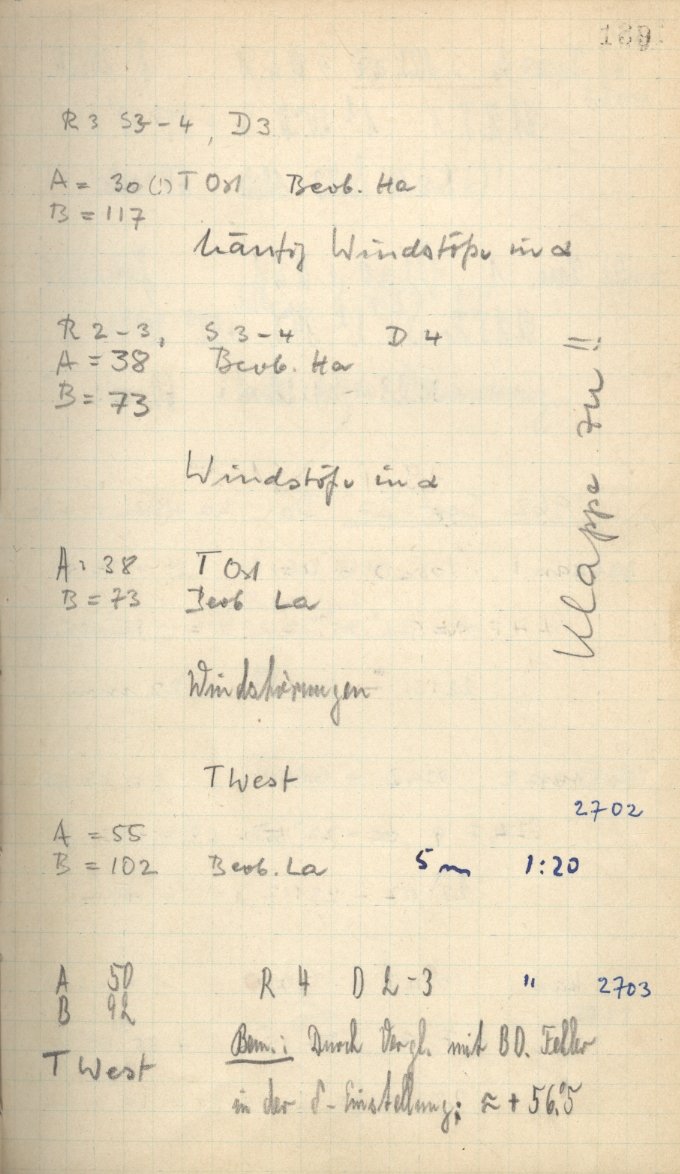 189
R 3 S3-4, D3
A = 30(!) T Ost Beob. Ha
B = 117
häufig Windstöße in α
R 2-3, S 3-4 D 4
A = 38 Beob. Ha
B = 73
Klappe zu!!
Windstöße in α
A = 38 T Ost
B = 73 Beob La
Windstörungen
T West
2702
A = 55
B = 102 Beob. La 5m 1:20
A 50 R 4 D 2-3 " 2703
B 92
Bem.: Durch Vergl. mit BD. Fehler
T West
in der δ-Einstellung: ≈ + 56.'5